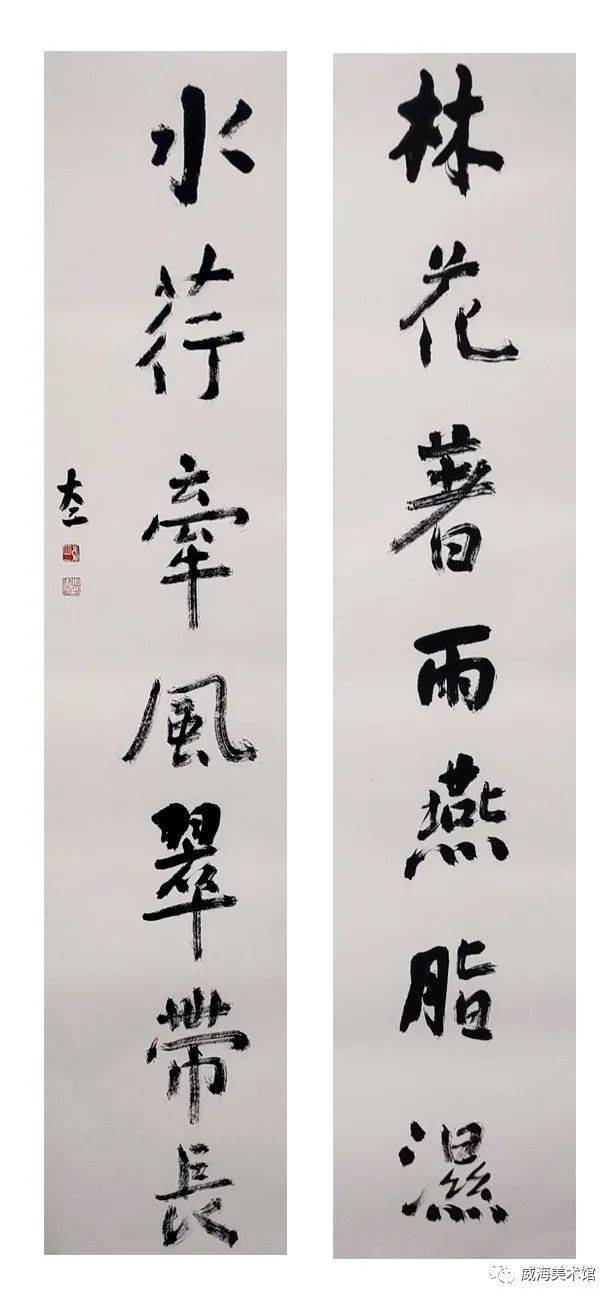 林花著雨燕脂濕
水荇牽風翠帶長
威海美术馆